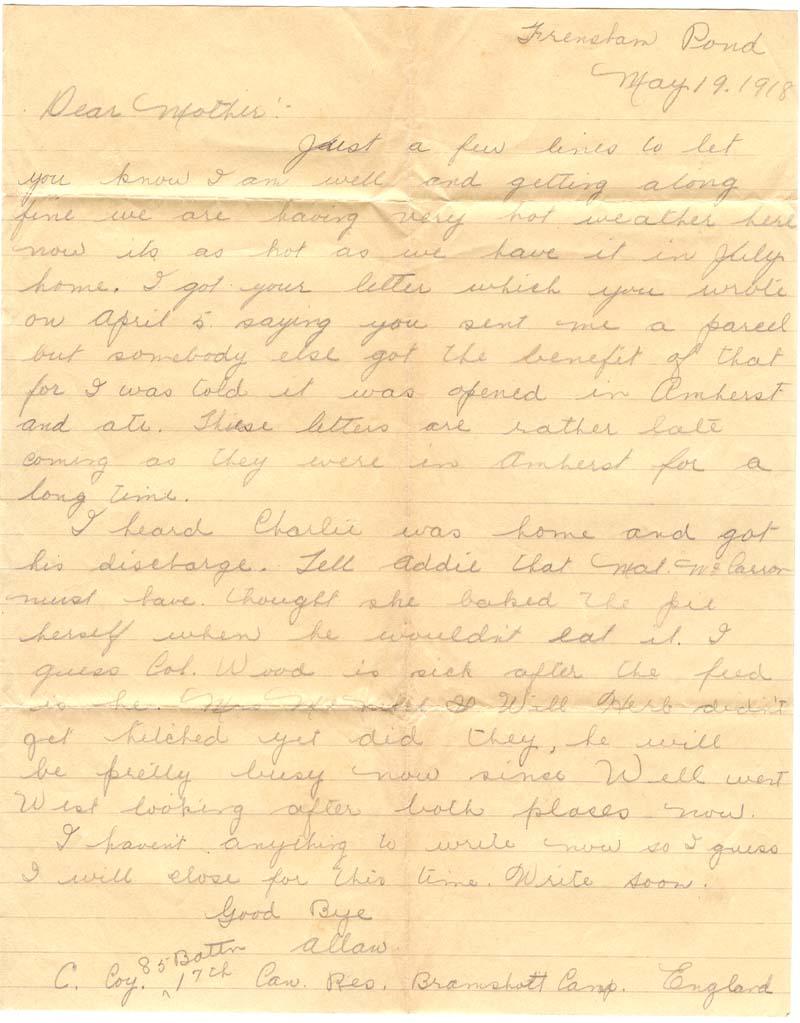 Frensham Pond
May 19. 1918
Dear Mother:-
Just a few lines to let
you know I am well and getting along
fine we are having very hot weather here
now its as hot as we have it in July
home. I got your letter which you wrote
on April 5. saying you sent me a parcel
but somebody else got the benefit of that
for I was told it was opened in Amherst
and ate. These letters are rather late
coming as they were in Amherst for a
long time.
I heard Charlie was home and got
his discharge. Tell Addie that Mat. McCarron
must have. thought she baked the pie
herself when he wouldn't eat it. I
guess Col. Wood is sick after the feed
is he. Mrs Will Herb didn't
get hitched yet did they, he will
be pretty busy now since Well went
West looking after both places now.
I havent anything to write now so I guess
I will close for this time. Write soon.
Good Bye
Allan
85 Battn
C. Coy. 17th Can. Res. Bramshott Camp. England